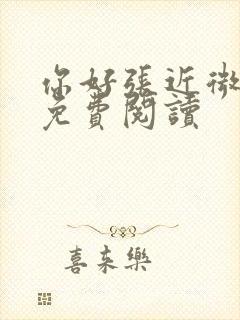 你好張近微
免費閱讀
喜来樂